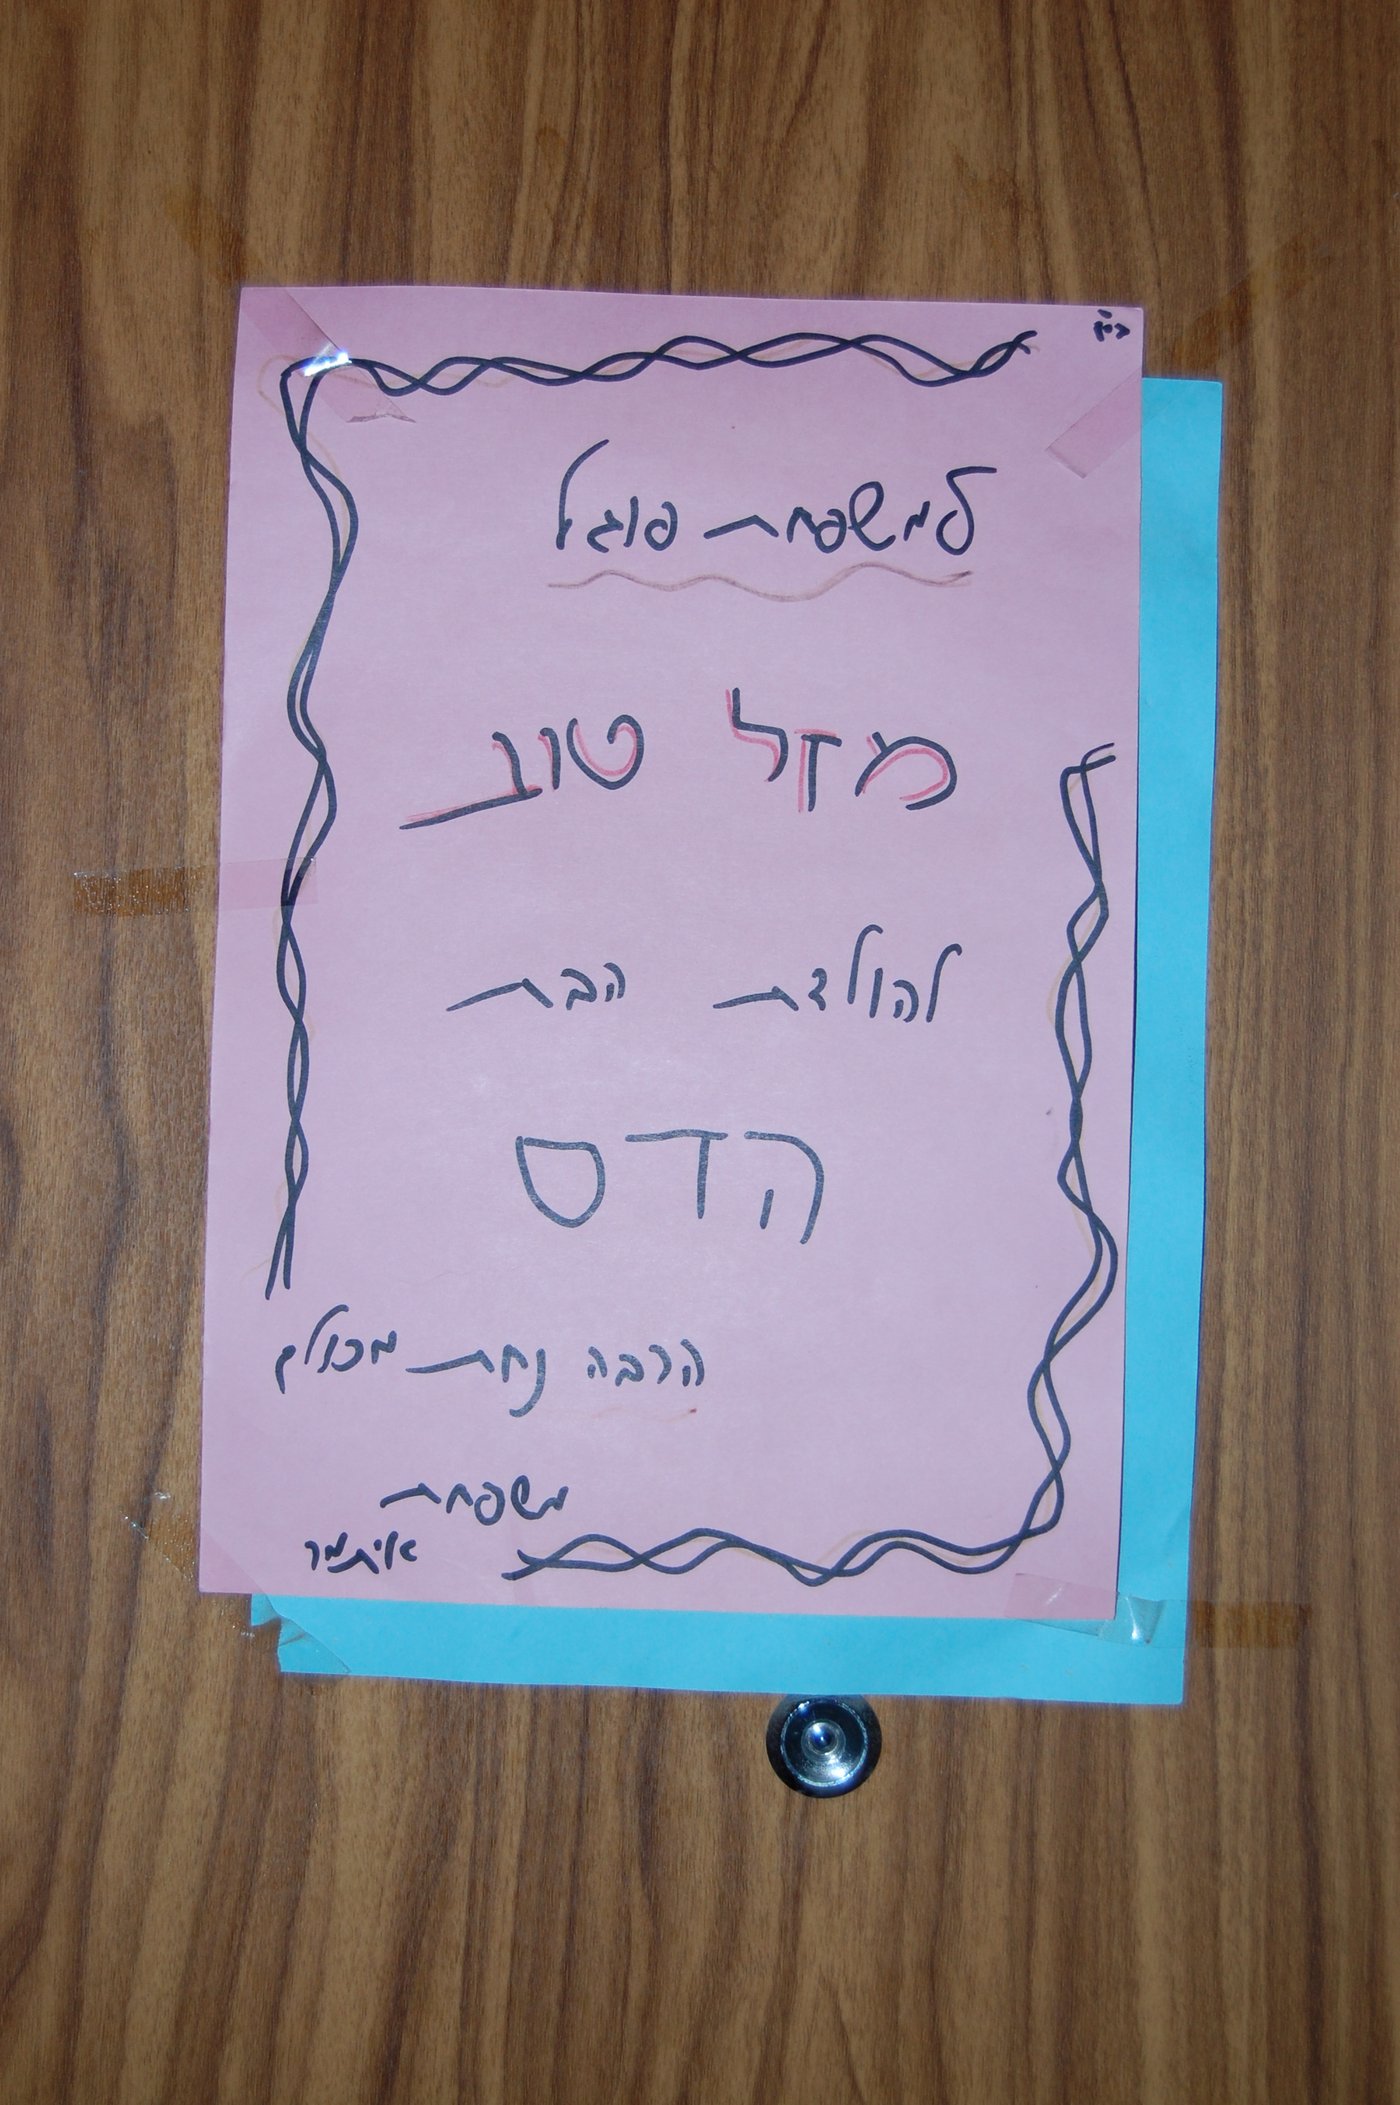 בס"ד
למשפחת פוגל
מזל טוב
להולדת הבת
הדס
הרבה נחת מכולם
משפחת
איתמר